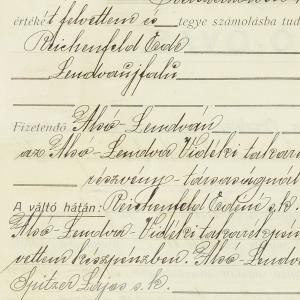 értékét felvettem és tegye számolásba tud
Reichenfeld Ede
Lendvaujfalu
Fizetendő Alsó-Lendván
az Alsó-Lendva Vidéki takaré
részvény-társaságnál
A váltó hátán: Reichenfeld Edéné s.k.
Alsó-Lendva-Vidéki takarékpén
vettem készpénzben Alsó-Lend
Spitzer Lajos s.k.